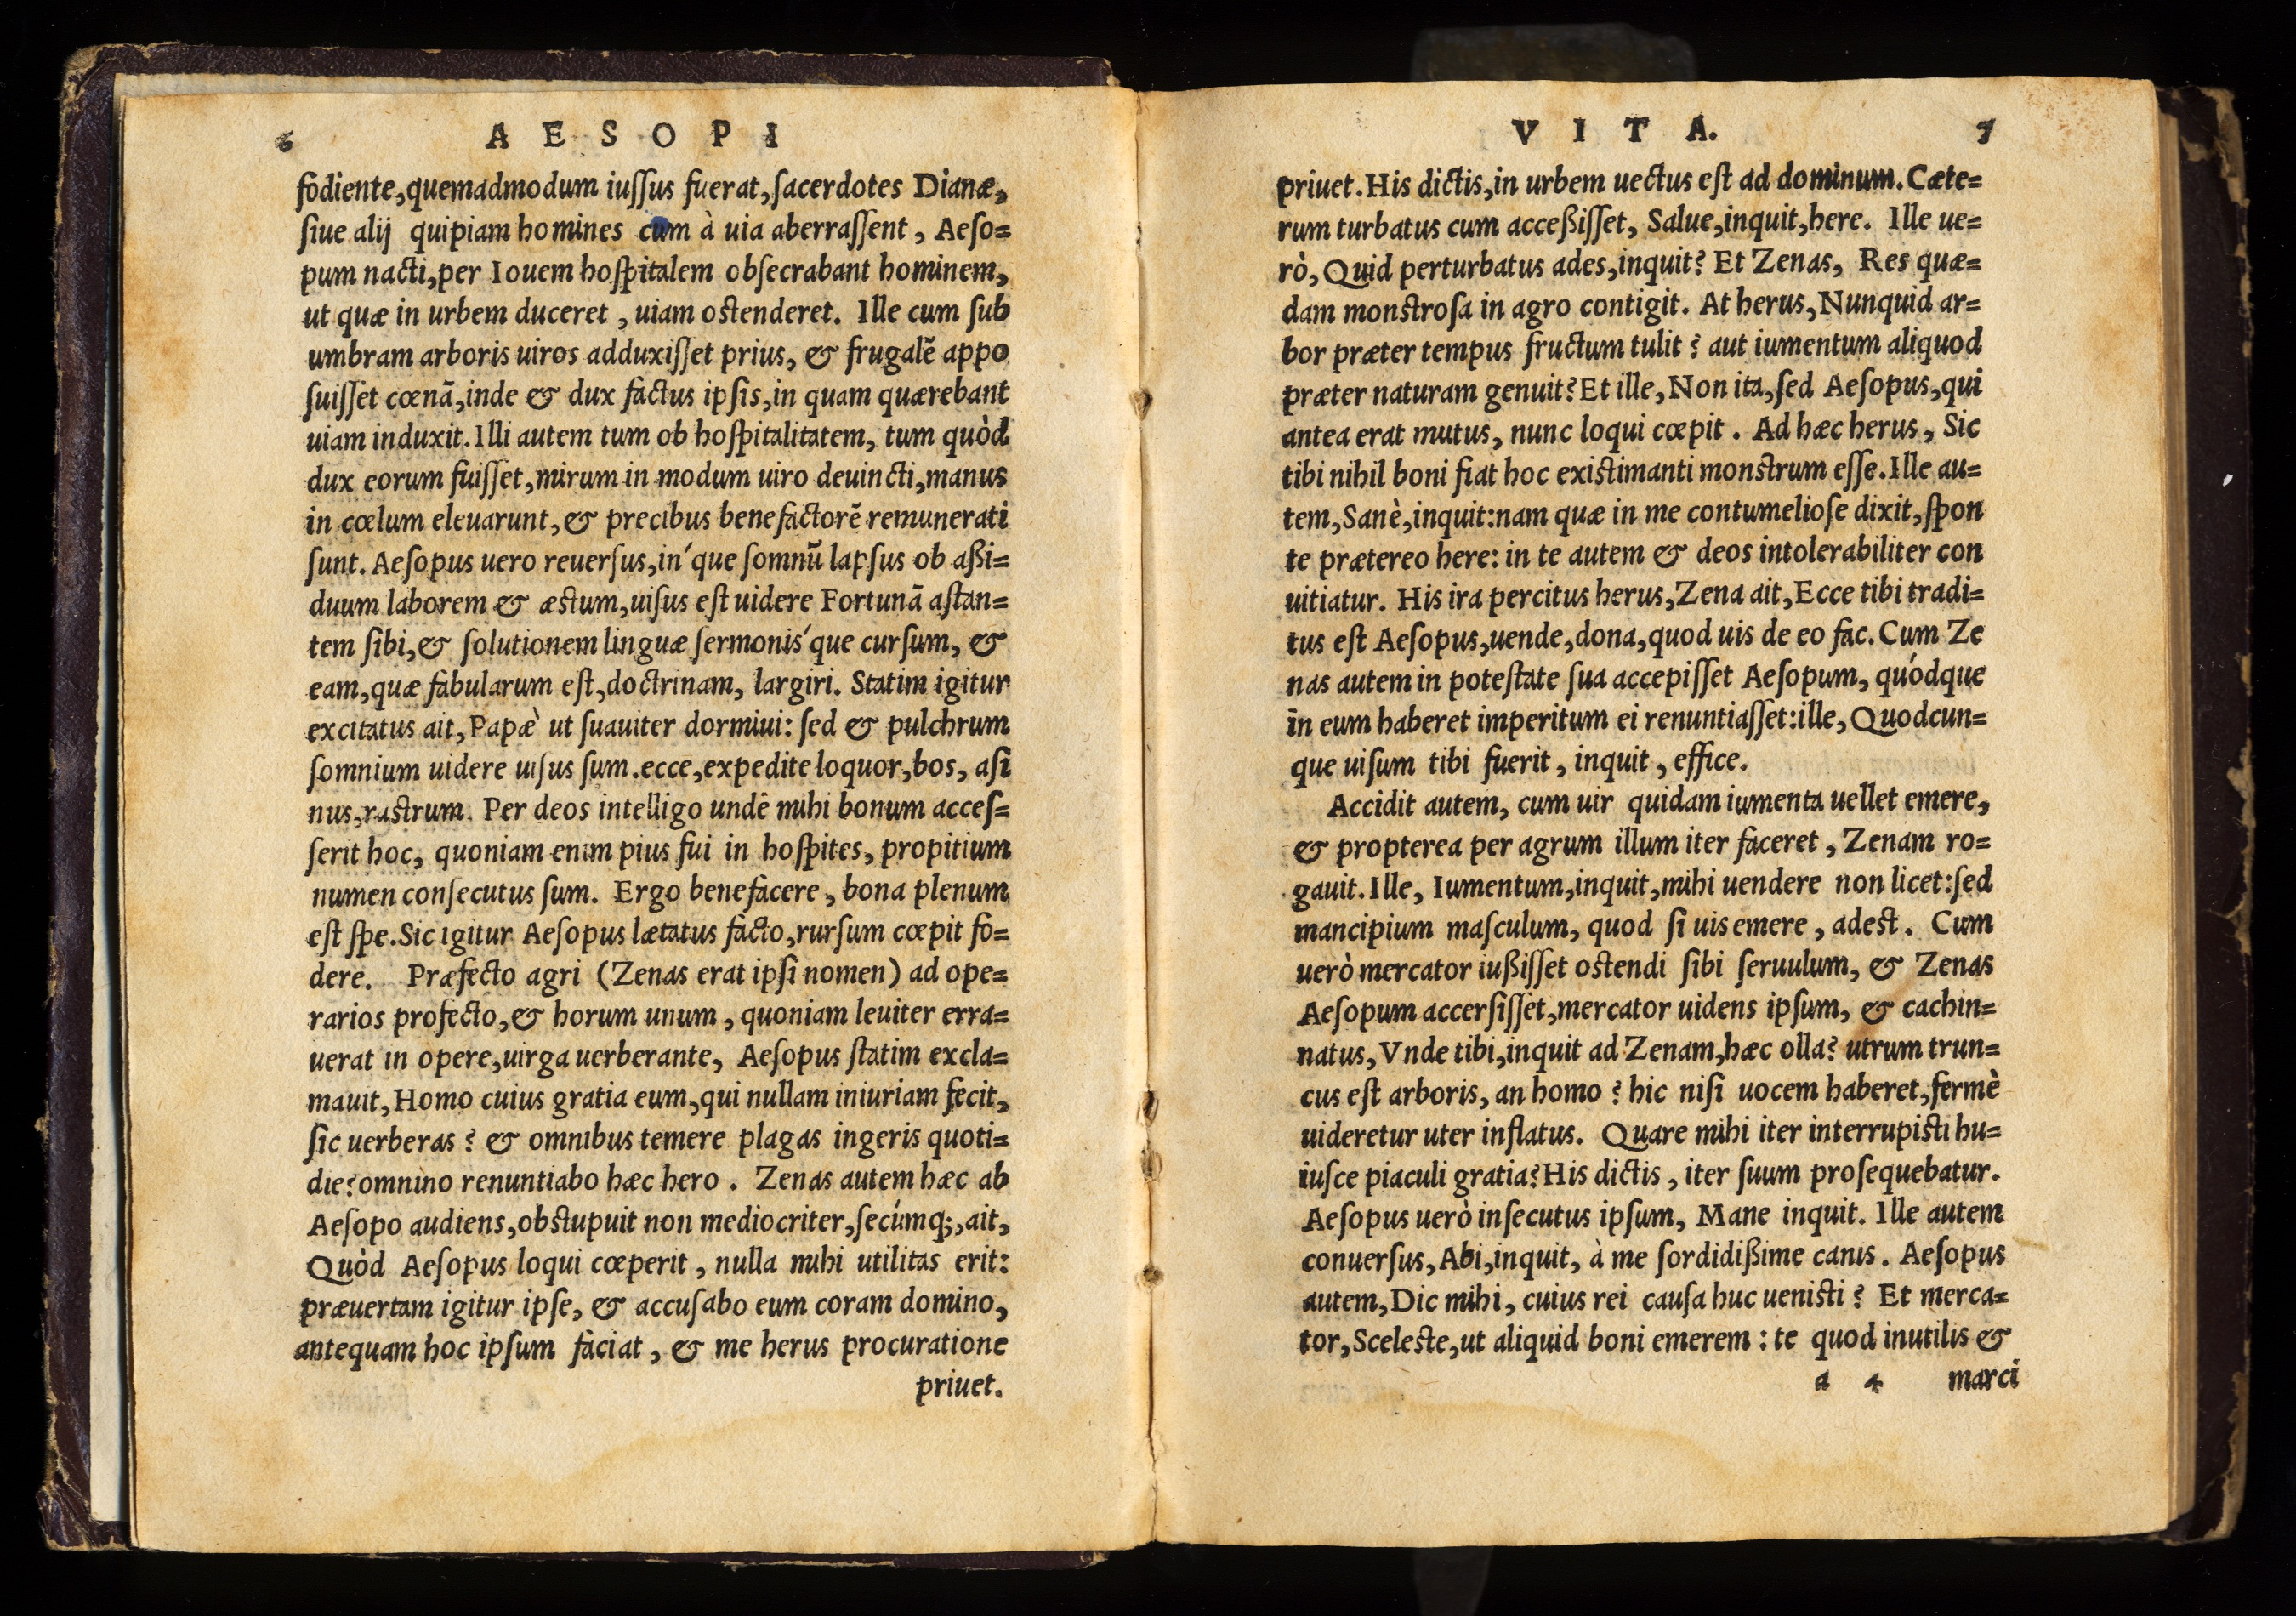 6 AESOPI
fodiente,quemadmodum iuſſus fuerat,ſacerdotes Dianæ,
ſiue alij quipiam homines cum à uia aberraſſent, Aeſo=
pum nacti,per Iouem hoſpitalem obſecrabant hominem,
ut quæ in urbem duceret, uiam oſtenderet. Ille cum ſub
umbram arboris uiros adduxiſſet prius, & frugalē appo
ſuiſſet cœnā,inde & dux factus ipſis,in quam quærebant
uiam induxit.Illi autem tum ob hoſpitalitatem, tum quòd
dux eorum fuiſſet,mirum in modum uiro deuincti,manus
in cœlum eleuarunt,& precibus benefactorē remunerati
ſunt. Aeſopus uero reuerſus,in´que ſomnū lapſus ob aßi=
duum laborem & æſtum,uiſus eſt uidere Fortunā aſtan=
tem ſibi,& ſolutionem linguæ ſermonis´que curſum, &
eam,quæ fabularum eſt,doctrinam, largiri. Statim igitur
excitatus ait,Papæ` ut ſuauiter dormiui: ſed & pulchrum
ſomnium uidere uiſus ſum.ecce,expedite loquor,bos, aſi
nus,raſtrum. Per deos intelligo undē mihi bonum acceſ=
ſerit hoc, quoniam enim pius fui in hoſpites, propitium
numen conſecutus ſum. Ergo benefacere, bona plenum
eſt ſpe.Sic igitur Aeſopus lætatus facto,rurſum cœpit fo=
dere. Præfecto agri (Zenas erat ipſi nomen) ad ope=
rarios profecto,& horum unum, quoniam leuiter erra=
uerat in opere,uirga uerberante, Aeſopus ſtatim excla=
mauit,Homo cuius gratia eum,qui nullam iniuriam fecit,
ſic uerberas? & omnibus temere plagas ingeris quoti=
die?omnino renuntiabo hæc hero. Zenas autem hæc ab
Aeſopo audiens,obſtupuit non mediocriter,ſecúmq;,ait,
Quòd Aeſopus loqui cœperit, nulla mihi utilitas erit:
præuertam igitur ipſe, & accuſabo eum coram domino,
antequam hoc ipſum faciat, & me herus procuratione
priuet.
VITA. 7
priuet.His dictis,in urbem uectus eſt ad dominum.Cæte=
rum turbatus cum acceßiſſet, Salue,inquit,here. Ille ue=
rò,Quid perturbatus ades,inquit? Et Zenas, Res quæ=
dam monſtroſa in agro contigit. At herus,Nunquid ar=
bor præter tempus fructum tulit? aut iumentum aliquod
præter naturam genuit?Et ille,Non ita,ſed Aeſopus,qui
antea erat mutus, nunc loqui cœpit. Ad hæc herus, Sic
tibi nihil boni fiat hoc exiſtimanti monſtrum eſſe.Ille au=
tem,Sanè,inquit:nam quæ in me contumelioſe dixit,ſpon
te prætereo here: in te autem & deos intolerabiliter con
uitiatur. His ira percitus herus,Zena ait,Ecce tibi tradi=
tus eſt Aeſopus,uende,dona,quod uis de eo fac.Cum Ze
nas autem in poteſtate ſua accepiſſet Aeſopum, quódque
in eum haberet imperitum ei renuntiaſſet:ille,Quodcun=
que uiſum tibi fuerit, inquit, effice.
Accidit autem, cum uir quidam iumenta uellet emere,
& propterea per agrum illum iter faceret, Zenam ro=
gauit.Ille, Iumentum,inquit,mihi uendere non licet:ſed
mancipium maſculum, quod ſi uis emere, adeſt. Cum
uerò mercator iußiſſet oſtendi ſibi ſeruulum, & Zenas
Aeſopum accerſiſſet,mercator uidens ipſum, & cachin=
natus,Vnde tibi,inquit ad Zenam,hæc olla? utrum trun=
cus eſt arboris, an homo? hic niſi uocem haberet,fermè
uideretur uter inflatus. Quare mihi iter interrupiſti hu=
iuſce piaculi gratia?His dictis, iter ſuum proſequebatur.
Aeſopus uerò inſecutus ipſum, Mane inquit. Ille autem
conuerſus,Abi,inquit, à me ſordidißime canis. Aeſopus
autem,Dic mihi, cuius rei cauſa huc ueniſti? Et merca=
tor,Sceleſte,ut aliquid boni emerem: te quod inutilis &
a 4 marci